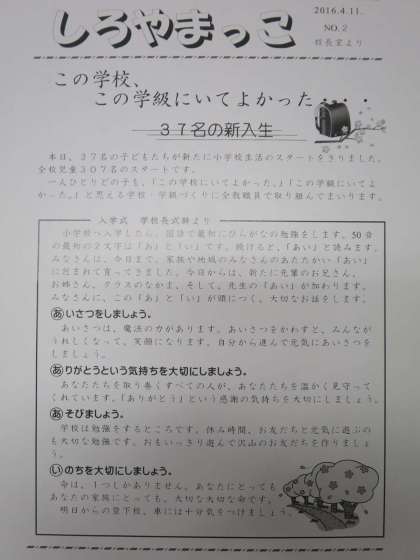 しろやまっこ
2016.4.11.
NO.2
校長室より
この学校、
この学級にいてよかった・・・・
37名の新入生
本日、37名の子どもたちが新たに小学校生活のスタートをきりました。
全校児童307名のスタートです。
一人ひとりどの子も、「この学校にいてよかった。」「この学級にいてよ
かった。」と思える学校・学級づくりに全教職員で取り組んでまいります。
入学式 学校長式辞より
小学校へ入学したら、国語で最初にひらがなの勉強をします。50音
の最初の2文字は「あ」と「い」です。続けると、「あい」と読みます。
みなさんは、今日まで、家族や地域のみなさんのあたたかい「あい」
に包まれて育ってきました。今日からは、新たに先輩のお兄さん、
お姉さん、クラスのなかま、そして、先生の「あい」が加わります。
みなさんに、この「あ」と「い」が頭につく、大切なお話をします。
あいさつをしましょう。
あいさつは、魔法の力があります。あいさつをかわすと、みんなが
うれしくなって、笑顔になります。自分から進んで元気にあいさつを
しましょう。
ありがとうという気持ちを大切にしましょう。
あなたたちを取り巻くすべての人が、あなたたちを温かく見守って
くれています。「ありがとう」という感謝の気持ちを大切にしましょう。
あそびましょう。
学校は勉強をするところです。休み時間、お友だちと元気に遊ぶの
も大切な勉強です。おもいっきり遊んで沢山のお友だちを作りましょ
う。
いのちを大切にしましょう。
命は、1つしかありません。あなたにとっても
あなたの家族にとっても、大切な大切な命です。
明日からの登下校、車には十分気をつけましょう。